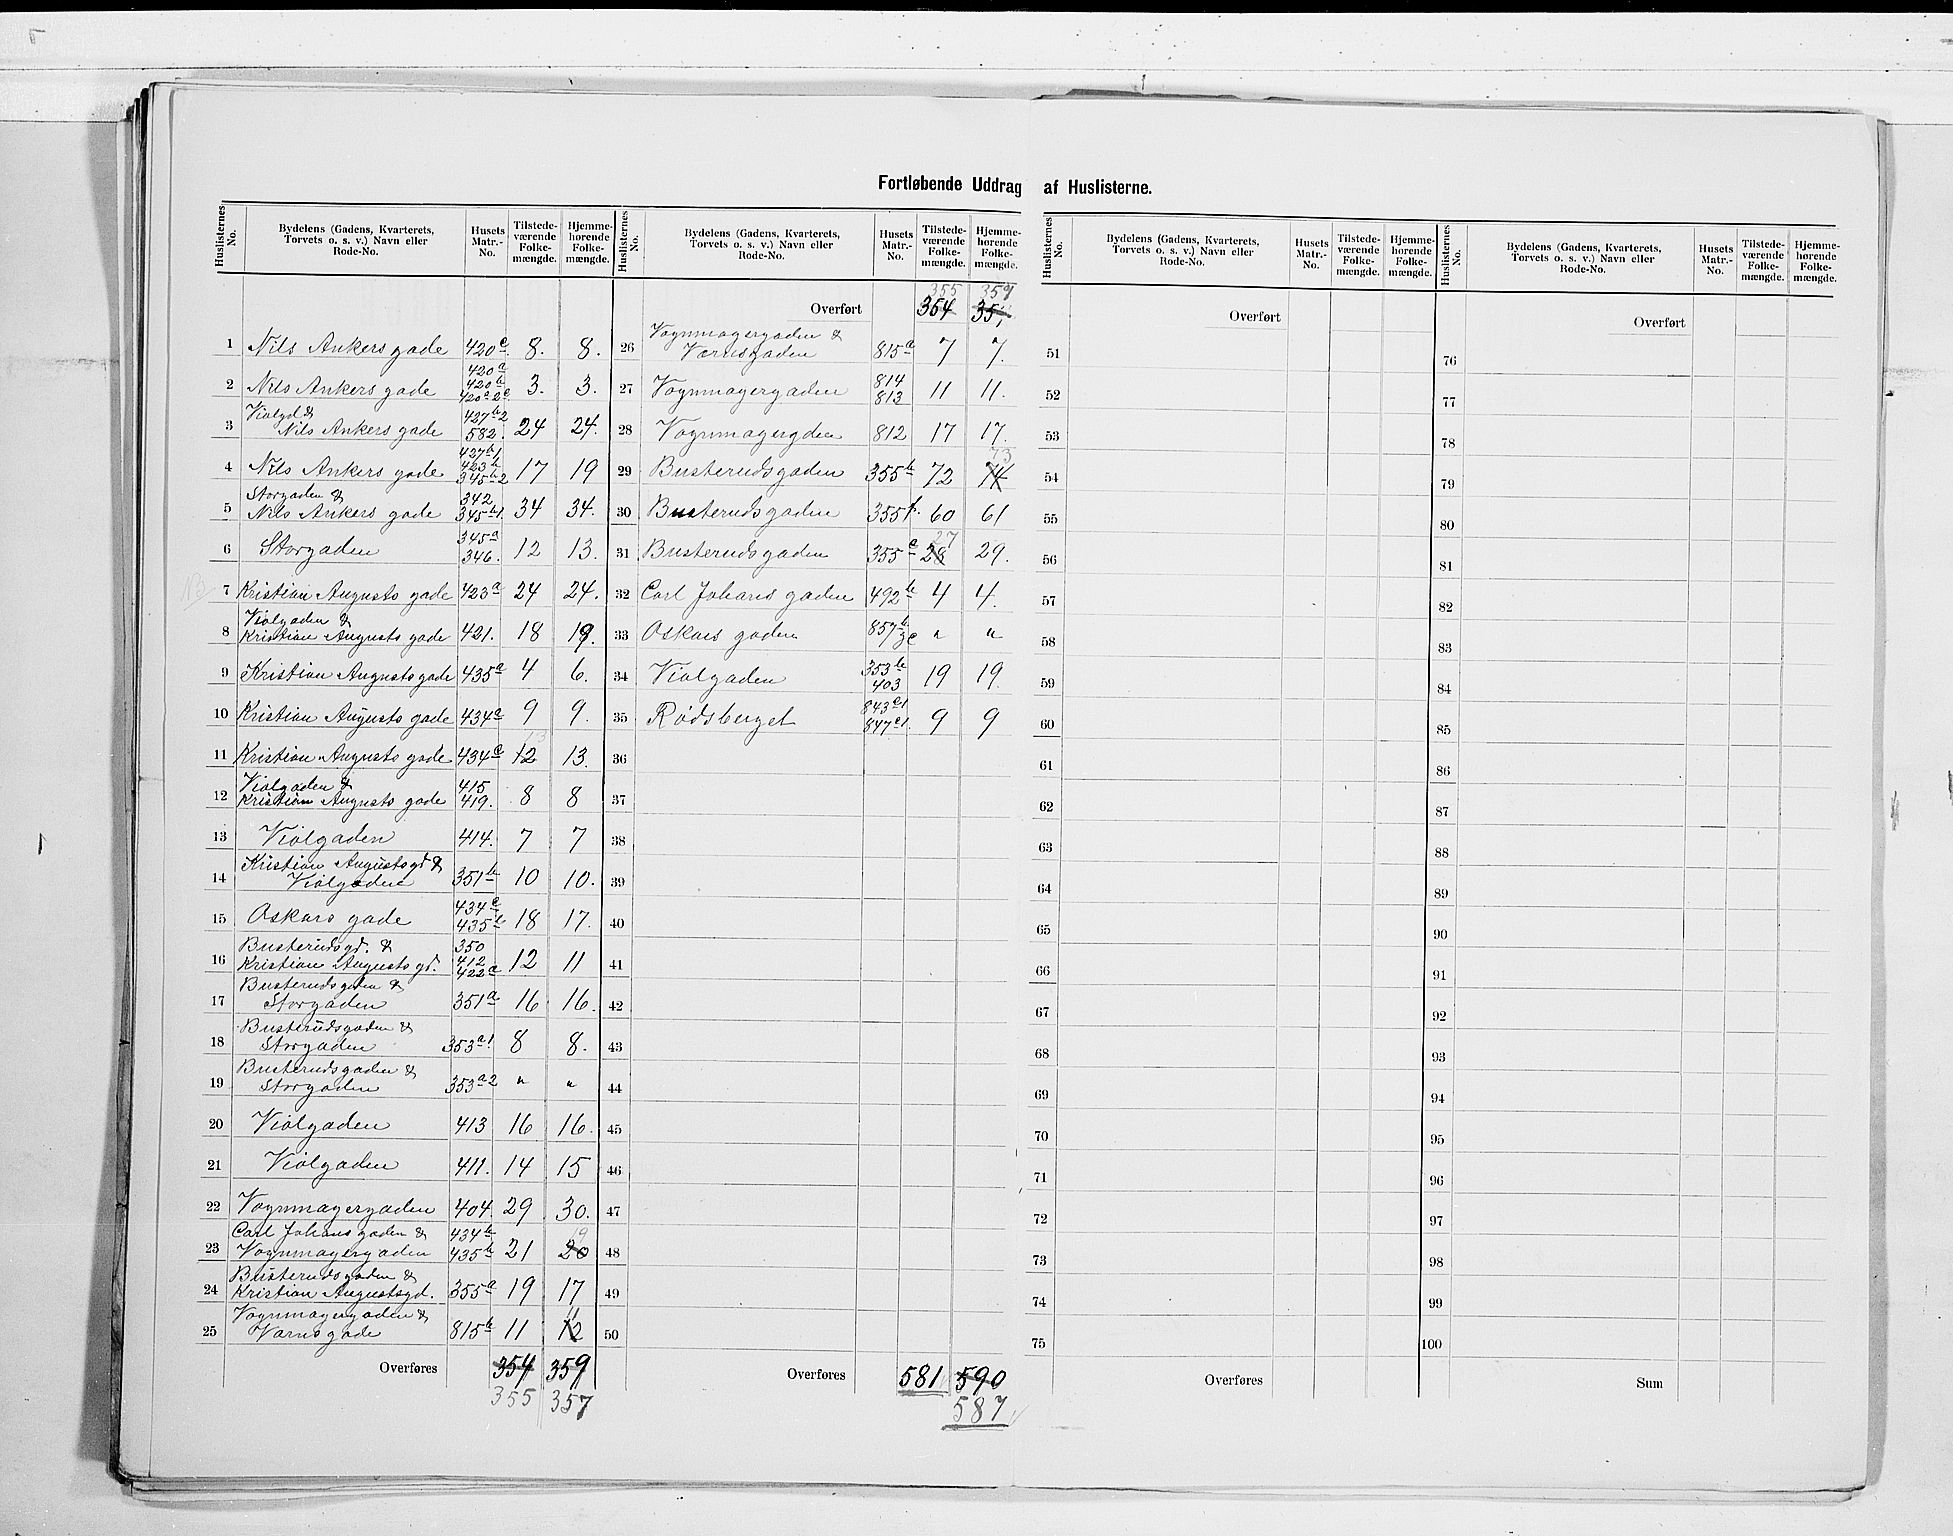 Fortløbende Uddrag af Huslisterne.
Huslisternes No. | Bydelens (Gadens, Kvarterets, Torvets o. s. v.) Navn eller Rode-No. | Husets Matr.-No. | Tilstedeværende Folkemængde. | Hjemmehørende Folkemængde.
1 Nils Ankers gade 420c. 8. 8.
2 Nils Ankers gade 420a 420b 3. 3.
3 Violgd & Nils Ankers gade 427b2 582. 24 24.
4 Nils Ankers gade 427b1 423b 345b2 17 19
5 Storgaden & Nils Ankers gade 342 345b1. 34 34.
6 Storgaden 345a 346. 12 13.
7 Kristian Augusts gade 423a 24 24.
8 Violgaden & Kristian Augusts gade 421. 18 19.
9 Kristian Augusts gade 435a 4 6.
10 Kristian Augusts gade 434a 9 9.
11 Kristian Augusts gade 434c 12 13 13.
12 Violgaden & Kristian Augusts gade 415 419. 8 8
13 Violgaden 414. 7 7
14 Kristian Augustsgd & Violgaden 351b 10 10.
15 Oskars gade 434c 435b 18 17.
16 Busterudsgd. & Kristian Augusts gd. 350 412 422a 12 11
17 Busterudsgaden & Storgaden 351a 16 16.
18 Busterudsgaden & Storgaden 353a1 8 8.
19 Busterudsgaden & Storgaden 353a2 " "
20 Violgaden 413 16 16.
21 Violgaden 411. 14 15
22 Vognmagergaden 404. 29 30.
23 Carl Johans gaden & Vognmagergaden 434b 435b 21 20 19
24 Busterudsgaden & Kristian Augustsgd. 355a 19 17
25 Vognmagergaden & Værnsgade 815b 11 12 11
Overføres 354 359
355 357
Huslisternes No. | Bydelens (Gadens, Kvarterets, Torvets o. s. v.) Navn eller Rode-No. | Husets Matr.-No. | Tilstedeværende Folkemængde. | Hjemmehørende Folkemængde.
355
Overført 354
26 Vognmagergaden & Værnsgaden 815a 7 7.
27 Vognmagergaden 814 813 11 11.
28 Vognmagergden 812 17 17.
29 Busterudsgaden 355b 72 74 73
30 Busterudsgaden 355 60 61
31 Busterudsgaden 355c 28 27 29.
32 Carl Johans gaden 492b 4 4.
33 Oskars gaden 857b " "
34 Violgaden 353b 403 19 19.
35 Rødsberget 843c1 847c1. 9 9
36
37
38
39
40
41
42
43
44
45
46
47
48
49
50
Overføres 581 590
587
Huslisternes No. | Bydelens (Gadens, Kvarterets, Torvets o. s. v.) Navn eller Rode-No. | Husets Matr.-No. | Tilstedeværende Folkemængde. | Hjemmehørende Folkemængde.
Overført
51
52
53
54
55
56
57
58
59
60
61
62
63
64
65
66
67
68
69
70
71
72
73
74
75
Overføres
Huslisternes No. | Bydelens (Gadens, Kvarterets, Torvets o. s. v.) Navn eller Rode-No. | Husets Matr.-No. | Tilstedeværende Folkemængde. | Hjemmehørende Folkemængde.
Overført
76
77
78
79
80
81
82
83
84
85
86
87
88
89
90
91
92
93
94
95
96
97
98
99
100
Sum